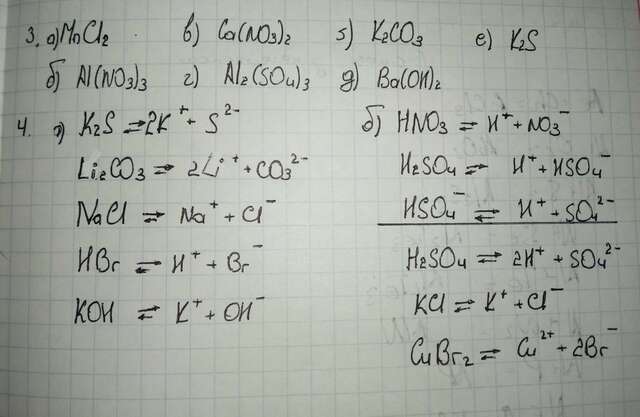 3. а) MnCl₂ в) Ca(NO₃)₂ ж) K₂CO₃ е) K₂S
б) Al(NO₃)₃ г) Al₂(SO₄)₃ д) Ba(OH)₂
4. а) K₂S ⇌ 2K⁺ + S²⁻
Li₂CO₃ ⇌ 2Li⁺ + CO₃²⁻
NaCl ⇌ Na⁺ + Cl⁻
HBr ⇌ H⁺ + Br⁻
KOH ⇌ K⁺ + OH⁻
б) HNO₃ ⇌ H⁺ + NO₃⁻
H₂SO₄ ⇌ H⁺ + HSO₄⁻
HSO₄⁻ ⇌ H⁺ + SO₄²⁻
H₂SO₄ ⇌ 2H⁺ + SO₄²⁻
KCl ⇌ K⁺ + Cl⁻
CuBr₂ ⇌ Cu²⁺ + 2Br⁻